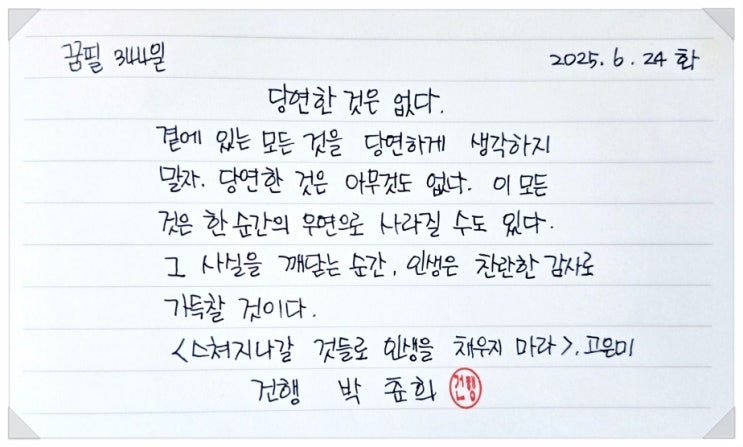 꿈필 344일 2025. 6. 24 화
당연한 것은 없다.
곁에 있는 모든 것을 당연하게 생각하지
말자. 당연한 것은 아무것도 없다. 이 모든
것은 한 순간의 우연으로 사라질 수도 있다.
그 사실을 깨닫는 순간, 인생은 찬란한 감사로
가득찰 것이다.
<스쳐지나갈 것들로 인생을 채우지 마라>, 고은미
건행 박 춘희 건행